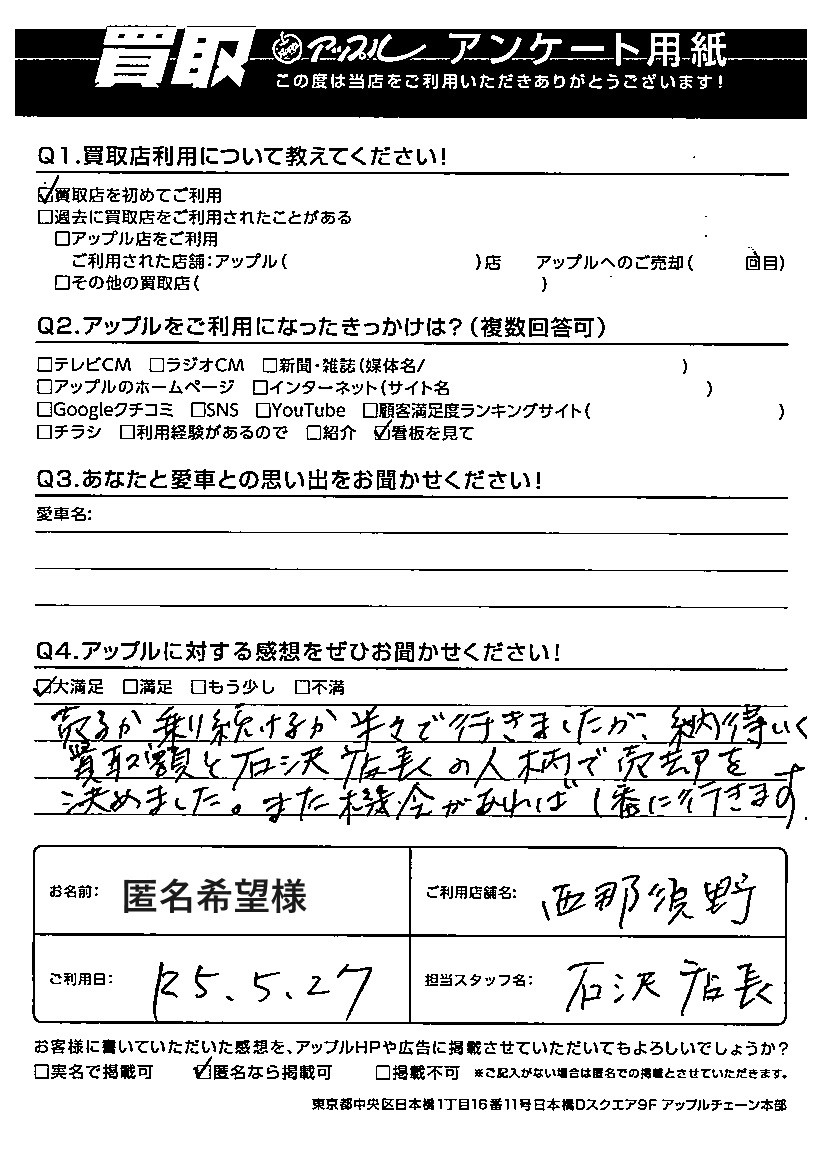 買取 アップル アンケート用紙
この度は当店をご利用いただきありがとうございます!
Q1.買取店利用について教えてください!
☑買取店を初めてご利用
□過去に買取店をご利用されたことがある
□アップル店をご利用
ご利用された店舗:アップル( )店 アップルへのご売却( 回目)
□その他の買取店( )
Q2.アップルをご利用になったきっかけは?(複数回答可)
□テレビCM □ラジオCM □新聞・雑誌(媒体名/ )
□アップルのホームページ □インターネット(サイト名 )
□Googleクチコミ □SNS □YouTube □顧客満足度ランキングサイト( )
□チラシ □利用経験があるので □紹介 ☑看板を見て
Q3.あなたと愛車との思い出をお聞かせください!
愛車名:
Q4.アップルに対する感想をぜひお聞かせください!
☑大満足 □満足 □もう少し □不満
売るか乗り続けるか半々で行きましたが、納得いく
買取額と石沢店長の人柄で売却を
決めました。また機会があれば1番に行きます
お名前: 匿名希望様 ご利用店舗名: 西那須野
ご利用日: R5.5.27 担当スタッフ名: 石沢店長
お客様に書いていただいた感想を、アップルHPや広告に掲載させていただいてもよろしいでしょうか?
□実名で掲載可 ☑匿名なら掲載可 □掲載不可 ※ご記入がない場合は匿名での掲載とさせていただきます。
東京都中央区日本橋1丁目16番11号日本橋Dスクエア9F アップルチェーン本部